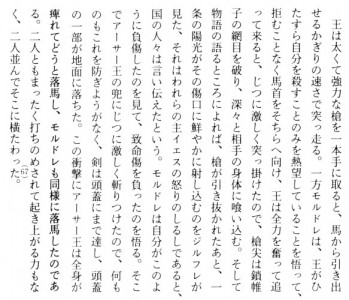 王は太くて強力な槍を一本手に取ると、馬から引き出
せるかぎりの速さで突っ走る。一方モルドレは、王がひ
たすら自分を殺すことのみを熱望していることを悟って、
拒むことなく馬首をそちらへ向け、王は全力を奮って追
って来ると、じつに激しく突っ掛けたので、槍尖は鎖帷
子の網目を破り、深々と相手の身体に喰い込む。そして
物語の語るところによれば、槍が引き抜かれたあと、一
条の陽光がその傷口に鮮やかに射し込むのをジルフレが
見た、それはわれらの主イエスの怒りのしるしであると、
国の人々は言い伝えたという。モルドレは自分がこのよ
うに負傷したのを見て、致命傷を負ったのを悟る。そこ
でアーサー王の兜にじつに激しく斬りつけたので、何も
のもこれを防ぎようがなく、剣は頭蓋にまで達し、頭蓋
の一部が地面に落ちた。この衝撃にアーサー王は全身が
痺れてどうと落馬し、モルドレも同様に落馬したのであ
る。二人ともまったく打ちのめされて起き上がる力もな
く、二人並んでそこに横たわった。